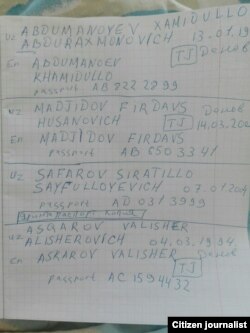 UZ ABDUMANOYEV XAMIDULLO
ABDURAXMONOVICH 13.01.19
En ABDUMANOEV TJ
KHAMIDULLO
passport AB 8222899
UZ MADJIDOV FIRDAVS
HUSANOVICH TJ 14.03.200
En MADJIDOV FIRDAVS
passport AB 6503341
UZ SAFAROV SIRATILLO
SAYFULLOYEVICH 07.01.2004
passport AD 0313999
UZ ASQAROV VALISHER
ALISHEROVICH 04.03.1994
En ASKAROV VALISHER
TJ
passport AC 1594432
Citizen journalist